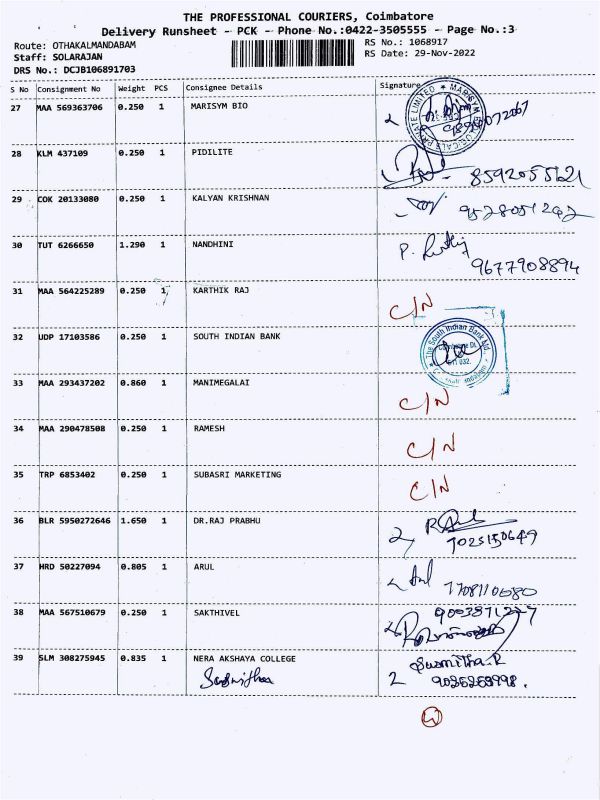 THE PROFESSIONAL COURIERS, Coimbatore
Delivery Runsheet - PCK - Phone No.:0422-3505555 - Page No.:3
Route: OTHAKALMANDABAM RS No.: 1068917
Staff: SOLARAJAN RS Date: 29-Nov-2022
DRS No.: DCJB106891703
S No Consignment No Weight PCS Consignee Details Signature
27 MAA 569363706 0.250 1 MARISYM BIO
28 KLM 437109 0.250 1 PIDILITE 8592055621
29 COK 20133080 0.250 1 KALYAN KRISHNAN
30 TUT 6266650 1.290 1 NANDHINI
9677908894
31 MAA 564225289 0.250 1 KARTHIK RAJ C/N
32 UDP 17103586 0.250 1 SOUTH INDIAN BANK The South Indian Bank Ltd.
33 MAA 293437202 0.860 1 MANIMEGALAI C/N
34 MAA 290478508 0.250 1 RAMESH C/N
35 TRP 6853402 0.250 1 SUBASRI MARKETING C/N
36 BLR 5950272646 1.650 1 DR.RAJ PRABHU
7025150649
37 HRD 50227094 0.805 1 ARUL Arul
7708110680
38 MAA 567510679 0.250 1 SAKTHIVEL
39 SLM 308275945 0.835 1 NERA AKSHAYA COLLEGE Susmitha.R
2